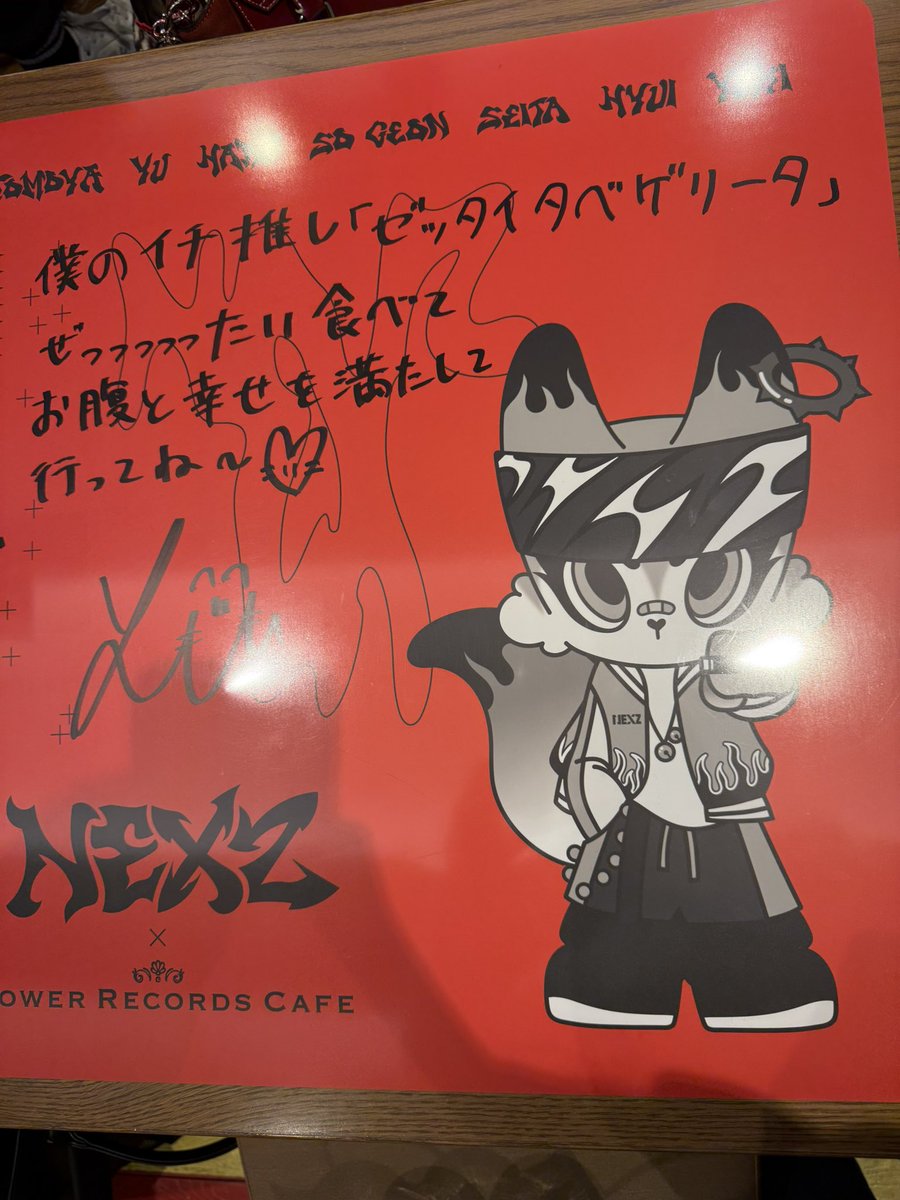 TOMOYA YU HARU SO GEON SEITA HYUI YUKI
僕のイチ推し「ゼッタイタベゲリータ」
ぜっっっっったい食べて
お腹と幸せを満たして
行ってね〜
NEXZ
NEXZ
×
OWER RECORDS CAFE